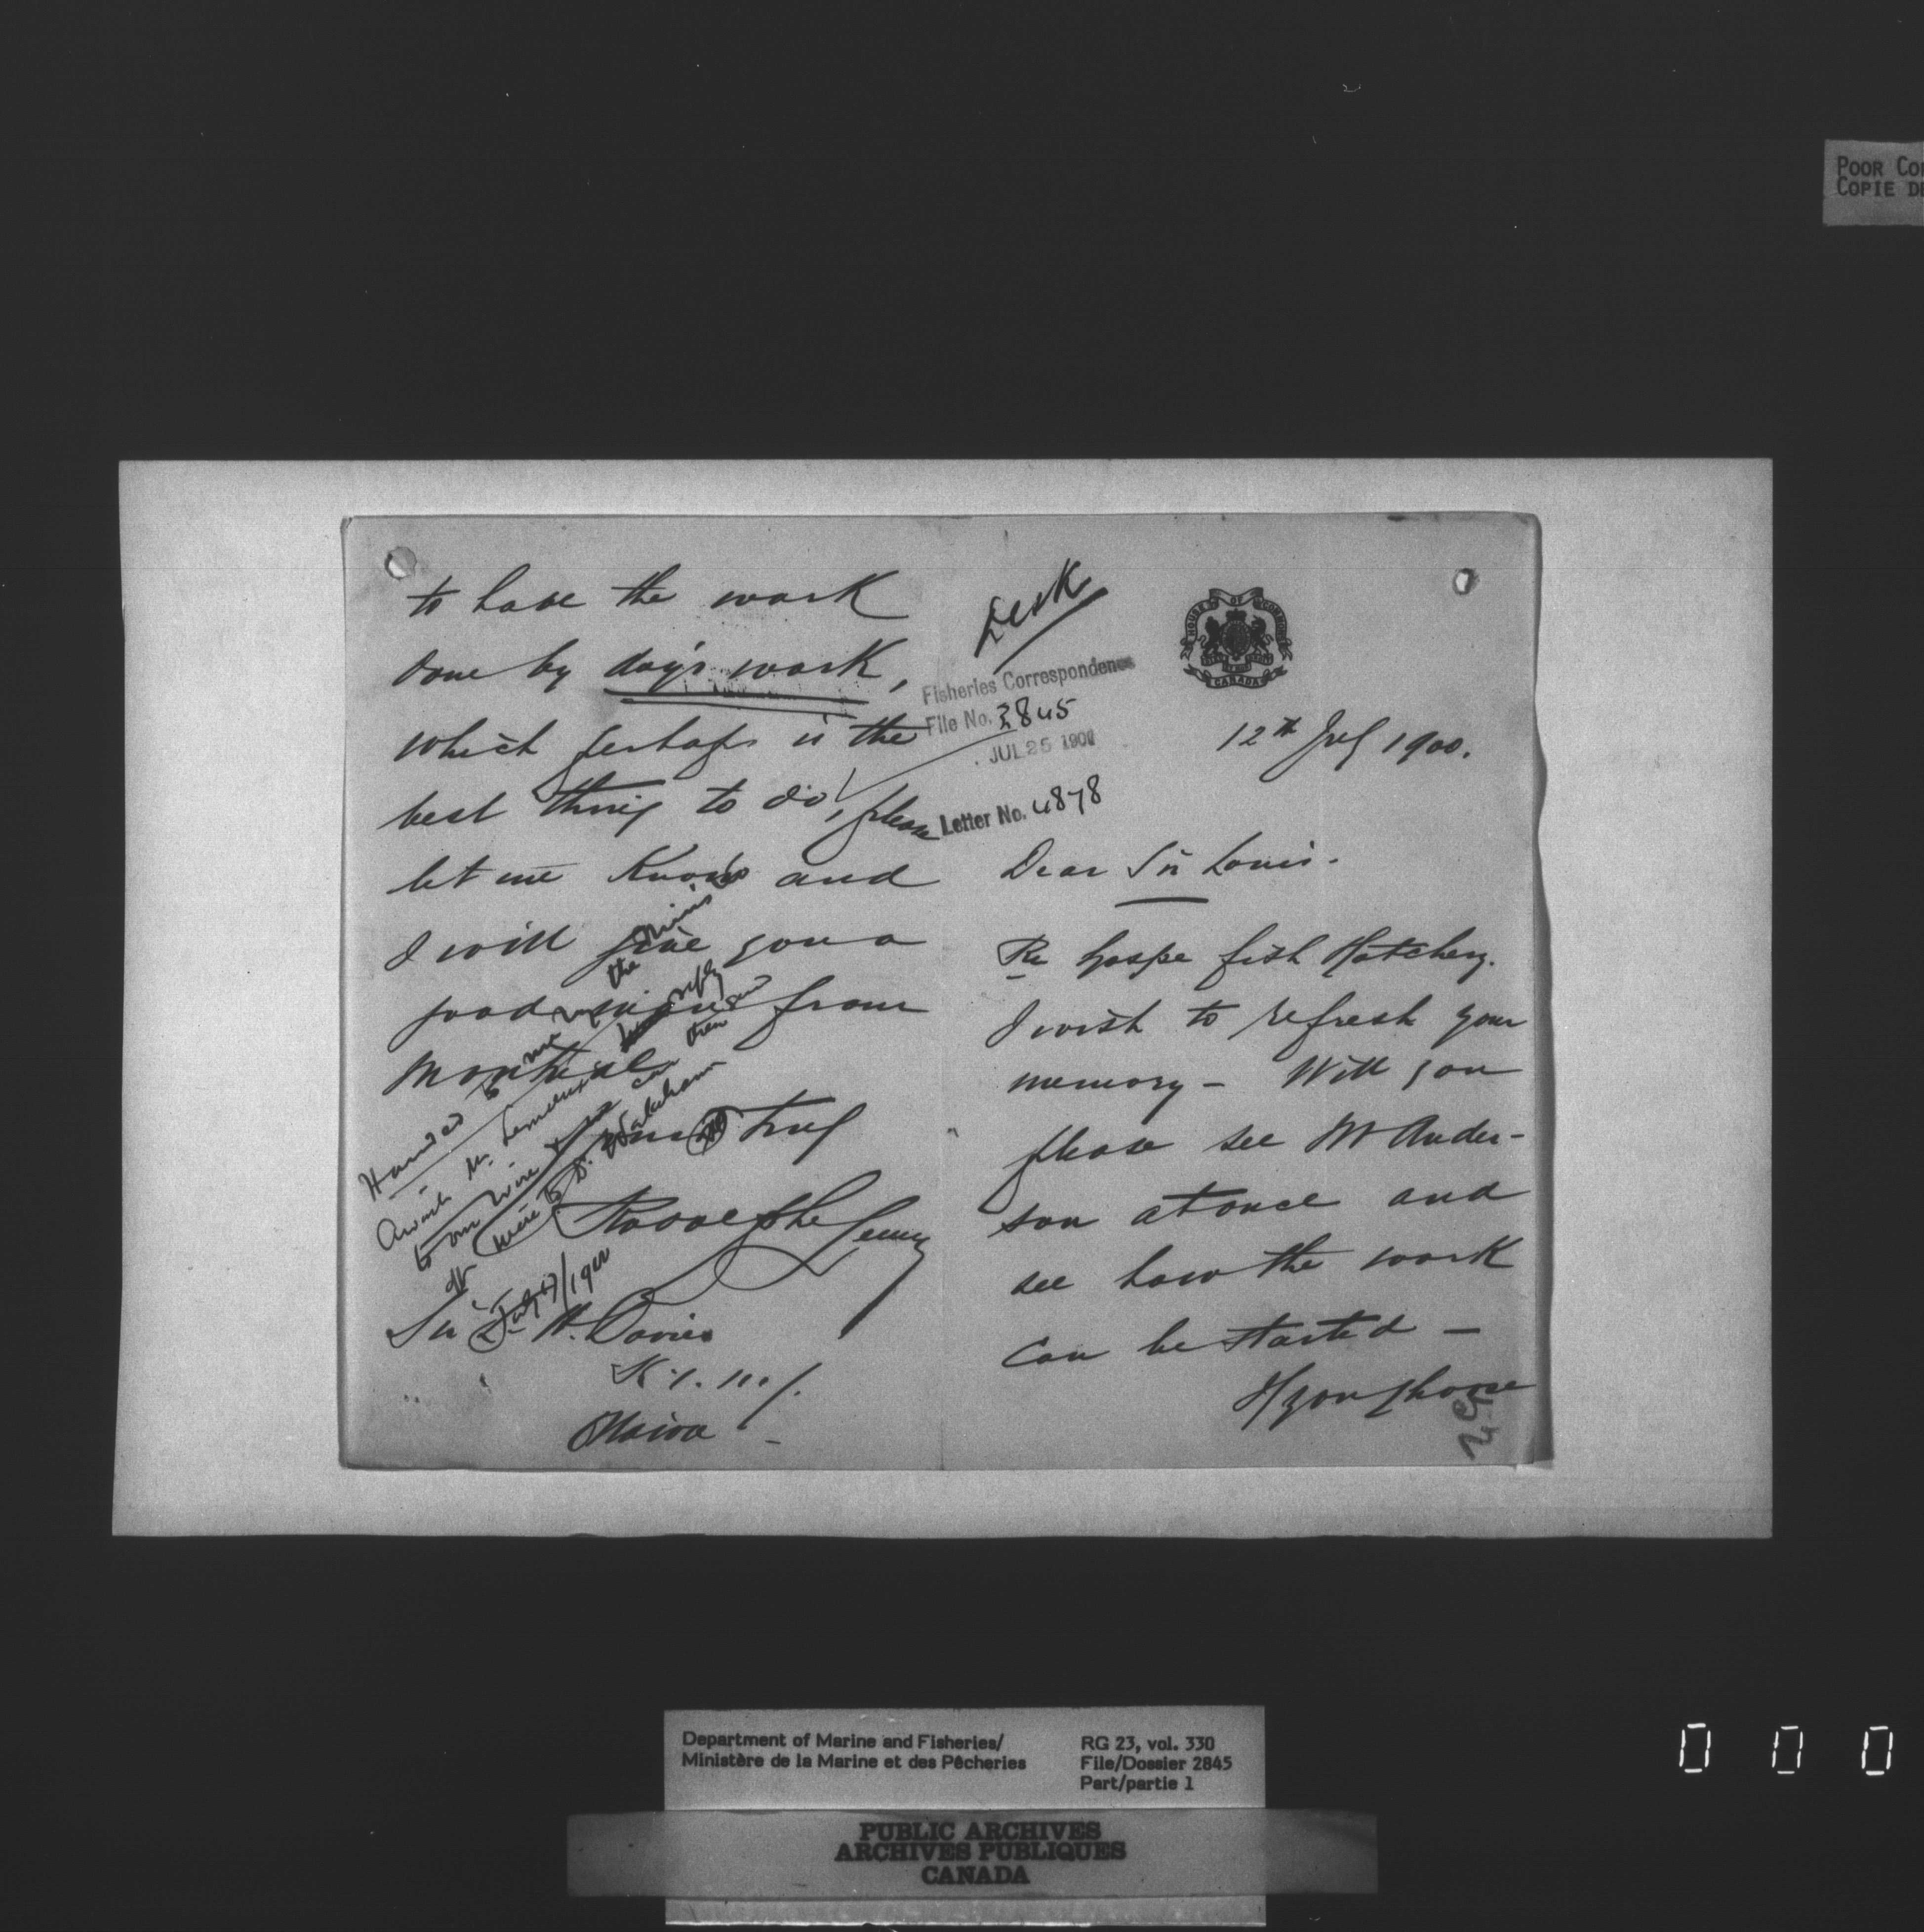 POOR COP
COPIE DE
HOUSE OF COMMONS
CANADA
12th July 1900.
Dear Sir Louis.
Re Gaspe fish Hatchery.
I wish to refresh your
memory - Will you
please see Mr Ander-
son at once and
see how the work
can be started -
If you choose
to have the work
done by day's work,
which perhaps is the
best thing to do, please
let me know and
I will give you a
good man from
Montreal
Yours truly
Rodolphe Lemieux
Sir L. H. Davies
K.C.M.G.
Ottawa -
Desk
Fisheries Correspondence
File No. 2845
JUL 25 1900
Letter No. 4878
Handed to me by the Minis
Await Mr. Lemieux reply
to my wire & then
write to Dr. Wakeham
July 17/1900
Department of Marine and Fisheries/
Ministère de la Marine et des Pêcheries
RG 23, vol. 330
File/Dossier 2845
Part/partie 1
PUBLIC ARCHIVES
ARCHIVES PUBLIQUES
CANADA
0 0 0